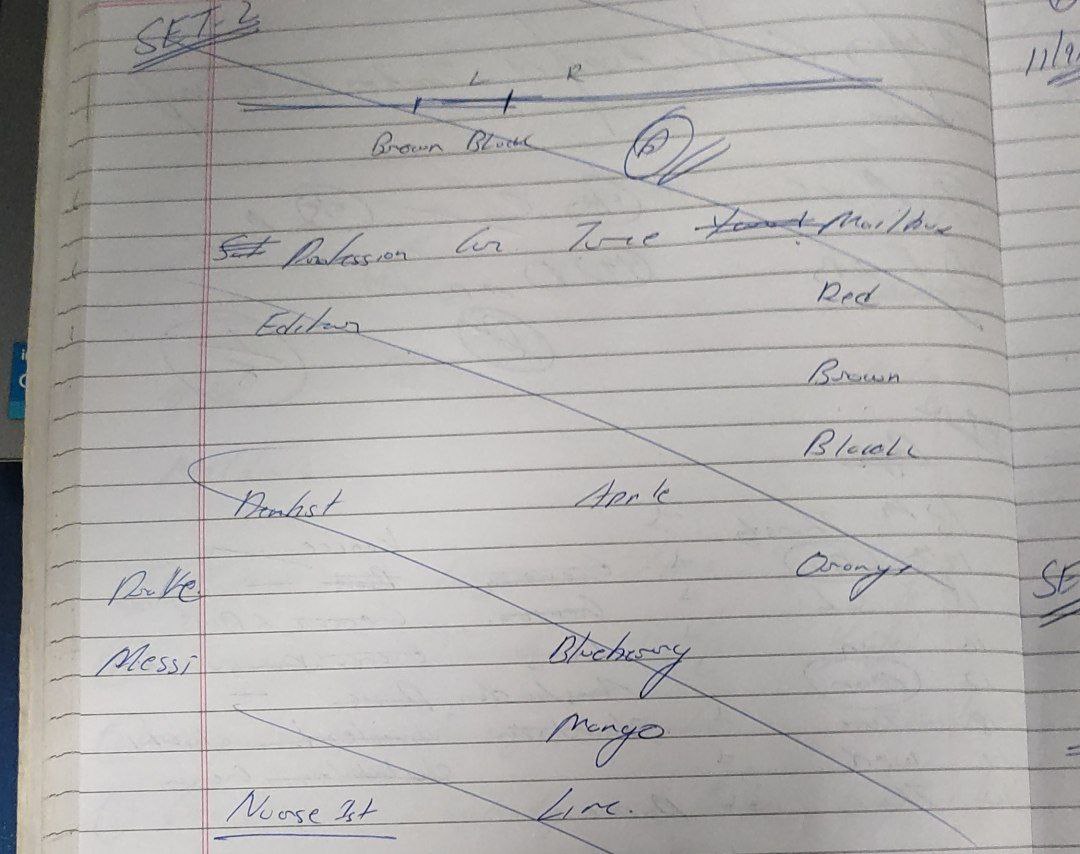 SET-2
L R
Brown Black
Profession Car Tree Mailbox
Red
Editor
Brown
Black
Dentist Apple
Orange
Drake
Messi Blueberry
Mango
Nurse 1st Lime.
11/9
SE